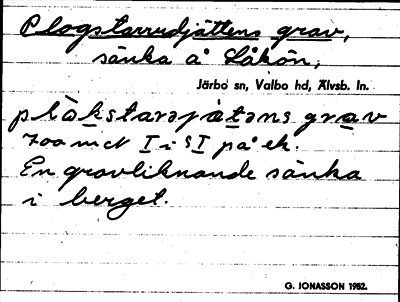 Plogstarrudjättens grav,
sänka å Låkön,
Järbo sn, Valbo hd, Älvsb. ln.
plòkstarajätəns grav
700 m N I i SI på ek.
En gravliknande sänka
i berget.
G. IONASSON 1952.